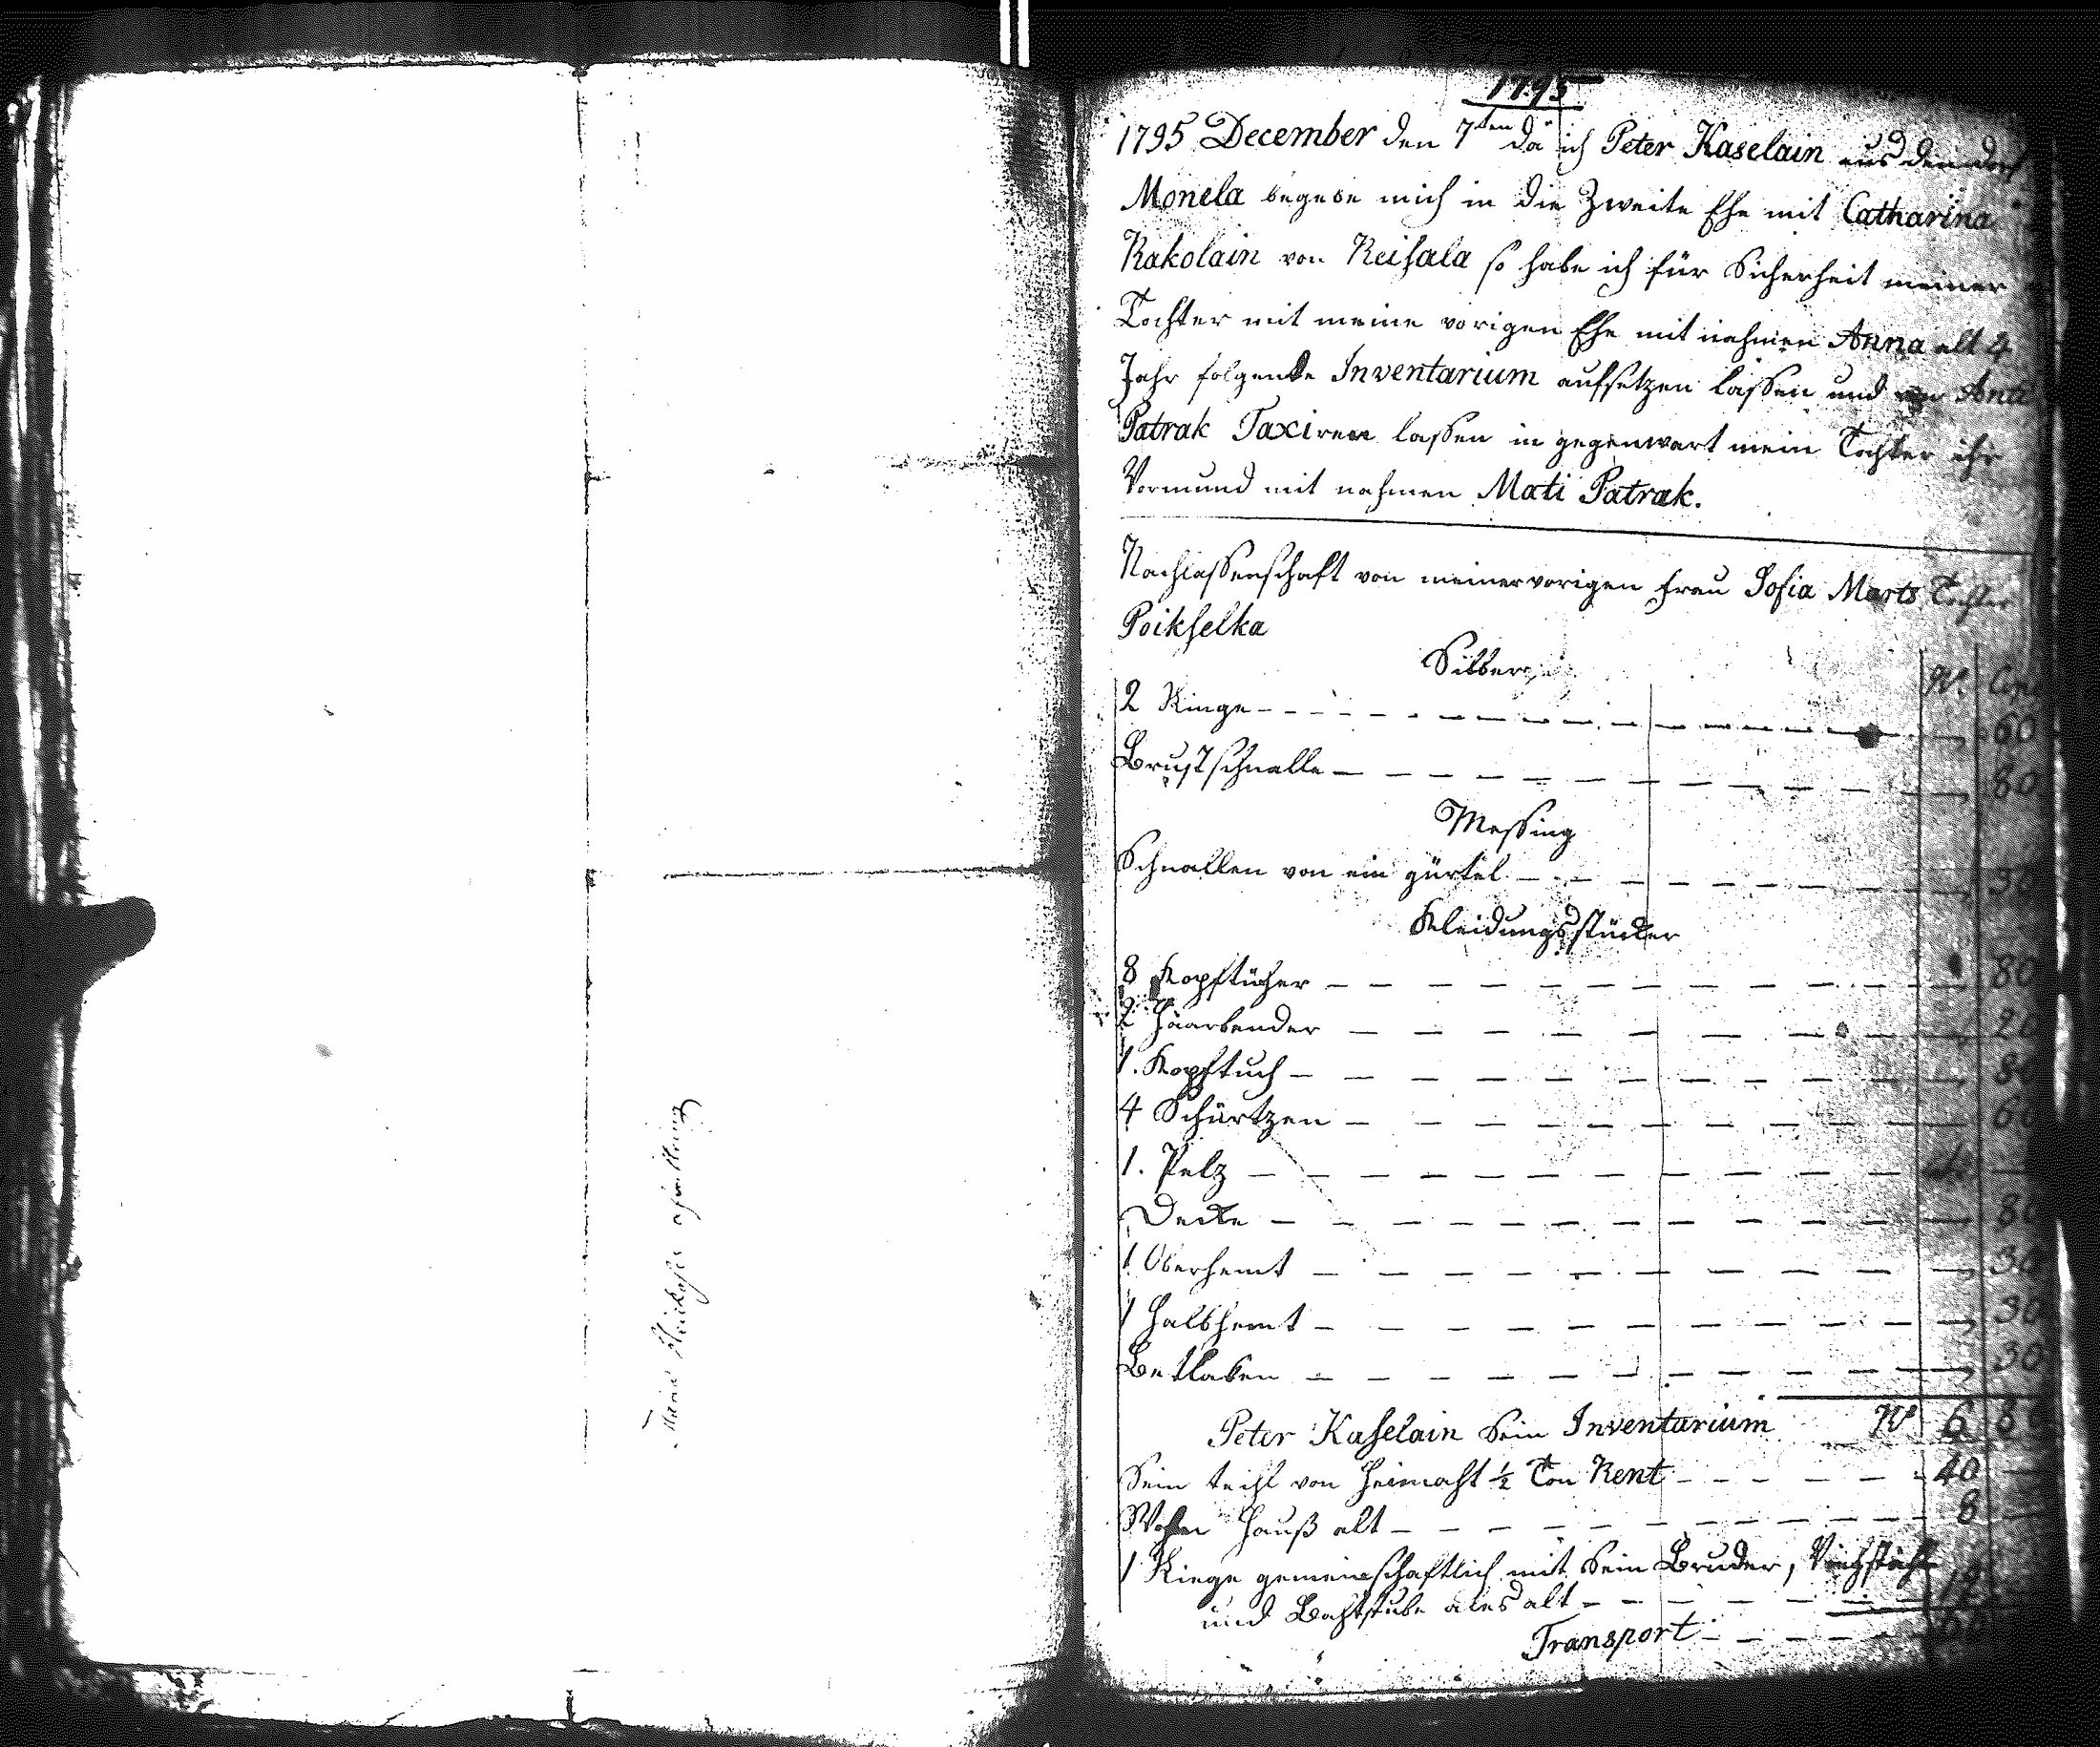 1795
1795 December den 7ten da ich Peter Kaselain aus den dorf
Monela begebe mich in die Zweite Ehe mit Catharina
Kakolain von Reisala so habe ich für Sicherheit meiner
Tochter mit meine vorigen Ehe mit nahmen Anna alt 4
Jahr folgende Inventarium aufsetzen lassen und von Anti
Patrak Taxiren lassen in gegenwart mein Tochter ihr
Vormund mit nahmen Mati Patrak.
Nachlassenschaft von meiner vorigen Frau Sofia Marts Tochter
Poikselka
Silber R. Cop
2 Ringe 60
Brustschnalle 80
Messing
Schnallen von ein gürtel
Kleidungsstücker
8 Kopftücher 80
2 Haarbender 20
1. Kopftuch
4 Schürtzen 60
1. Pelz
Decke 80
1 Oberhemt 30
1 Halbhemt 30
Betlaken 30
Peter Kaselain Sein Inventarium R 6
Sein teihl von Heimaht ½ Ton Rent 40
Wohn Hauß alt 8
1 Riege gemeinschaftlich mit Sein Bruder, Viehstahl
und Bahtstube ales alt 12
Transport 60